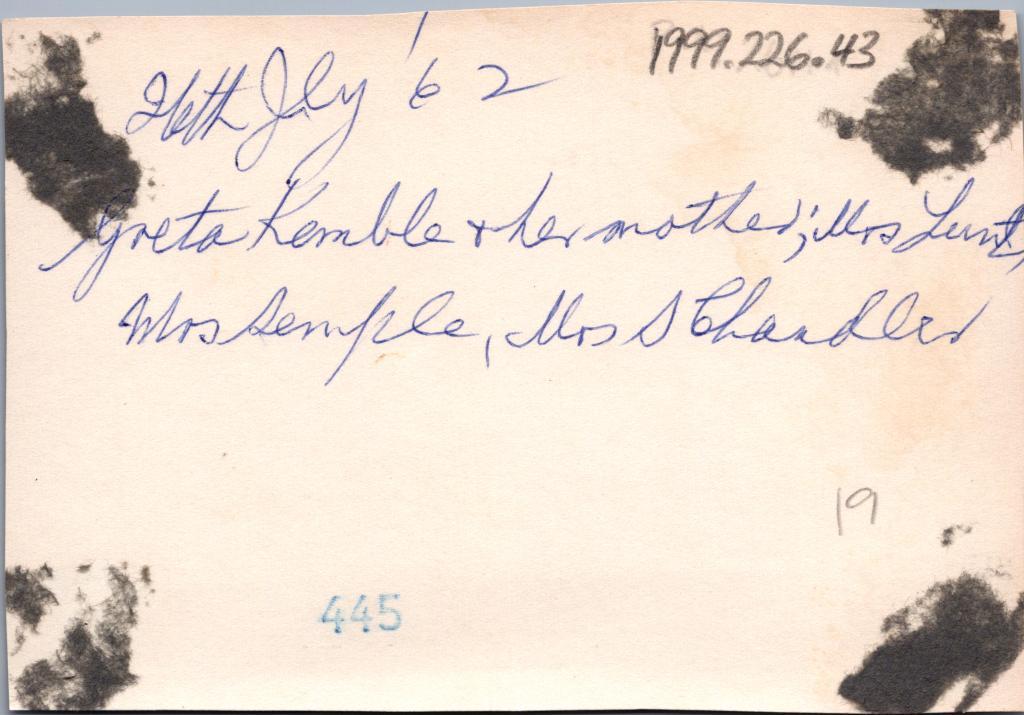 1999.226.43
26th Jly '62
Greta Kemble + her mother; Mrs Lunt,
Mrs Semple, Mrs S Chandler
19
445